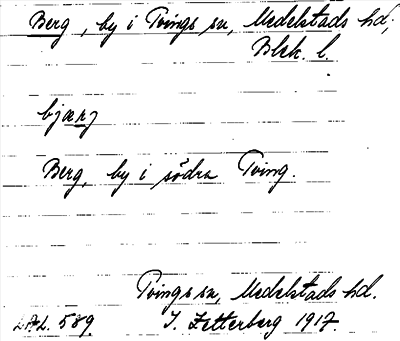 Berg, by i Tvings sn, Medelstads hd,
Blek. l.
bjærj
Berg, by i södra Tving.
Tvings sn, Medelstads hd.
589 J. Zetterberg 1917.